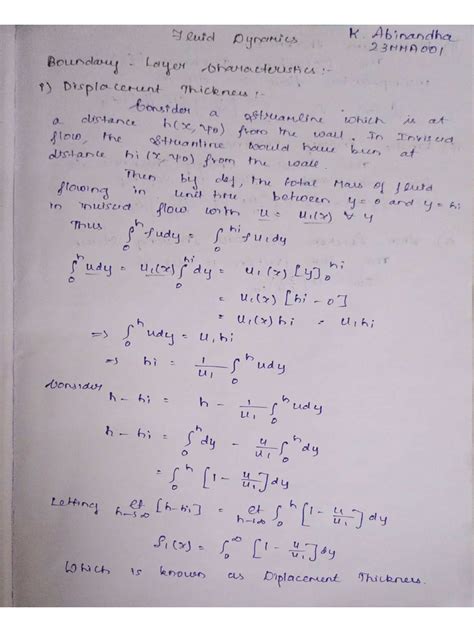 Fluid Dynamics
K. Abinandha
23MMA001
Boundary - Layer Characteristics :-
1) Displacement Thickness :-
Consider a streamline which is at
a distance h(x, ψ0) from the wall. In Inviscid
flow, the streamline would have been at
distance hi (x, ψ0) from the wall.
Then by def, the total Mass of fluid
flowing in unit time between y = 0 and y = hi
in inviscid flow with u = u1(x) ∀ y
Thus ∫₀ʰ ρudy = ∫₀ʰⁱ ρu1dy
∫₀ʰ udy = u1(x) ∫₀ʰⁱ dy = u1(x) [y]₀ʰⁱ
= u1(x) [hi - 0]
= u1(x) hi = u1hi
⇒ ∫₀ʰ udy = u1hi
⇒ hi = 1/u1 ∫₀ʰ udy
Consider
h - hi = h - 1/u1 ∫₀ʰ udy
h - hi = ∫₀ʰ dy - u/u1 ∫₀ʰ dy
= ∫₀ʰ [1 - u/u1] dy
Letting lt h→∞ [h-hi] = lt h→∞ ∫₀ʰ [1 - u/u1] dy
δ1(x) = ∫₀^∞ [1 - u/u1] dy
Which is known as Diplacement Thickness.